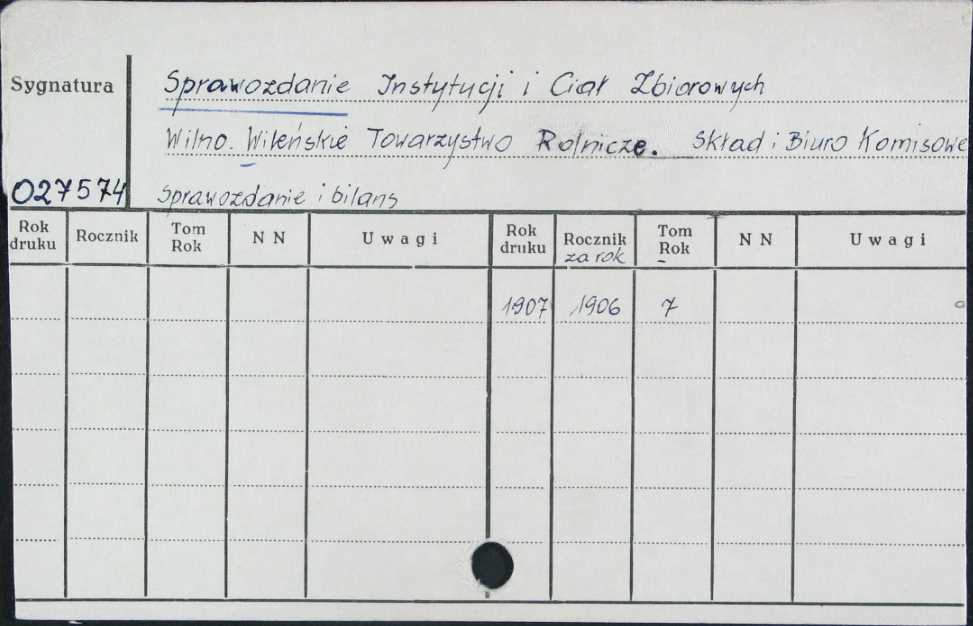 Sygnatura
Sprawozdanie Instytucji i Ciał Zbiorowych
Wilno. Wileńskie Towarzystwo Rolnicze. Skład i Biuro Komisowe
027574 Sprawozdanie i bilans
Rok druku Rocznik Tom Rok N N Uwagi Rok druku Rocznik za rok Tom Rok N N Uwagi
1907 1906 7